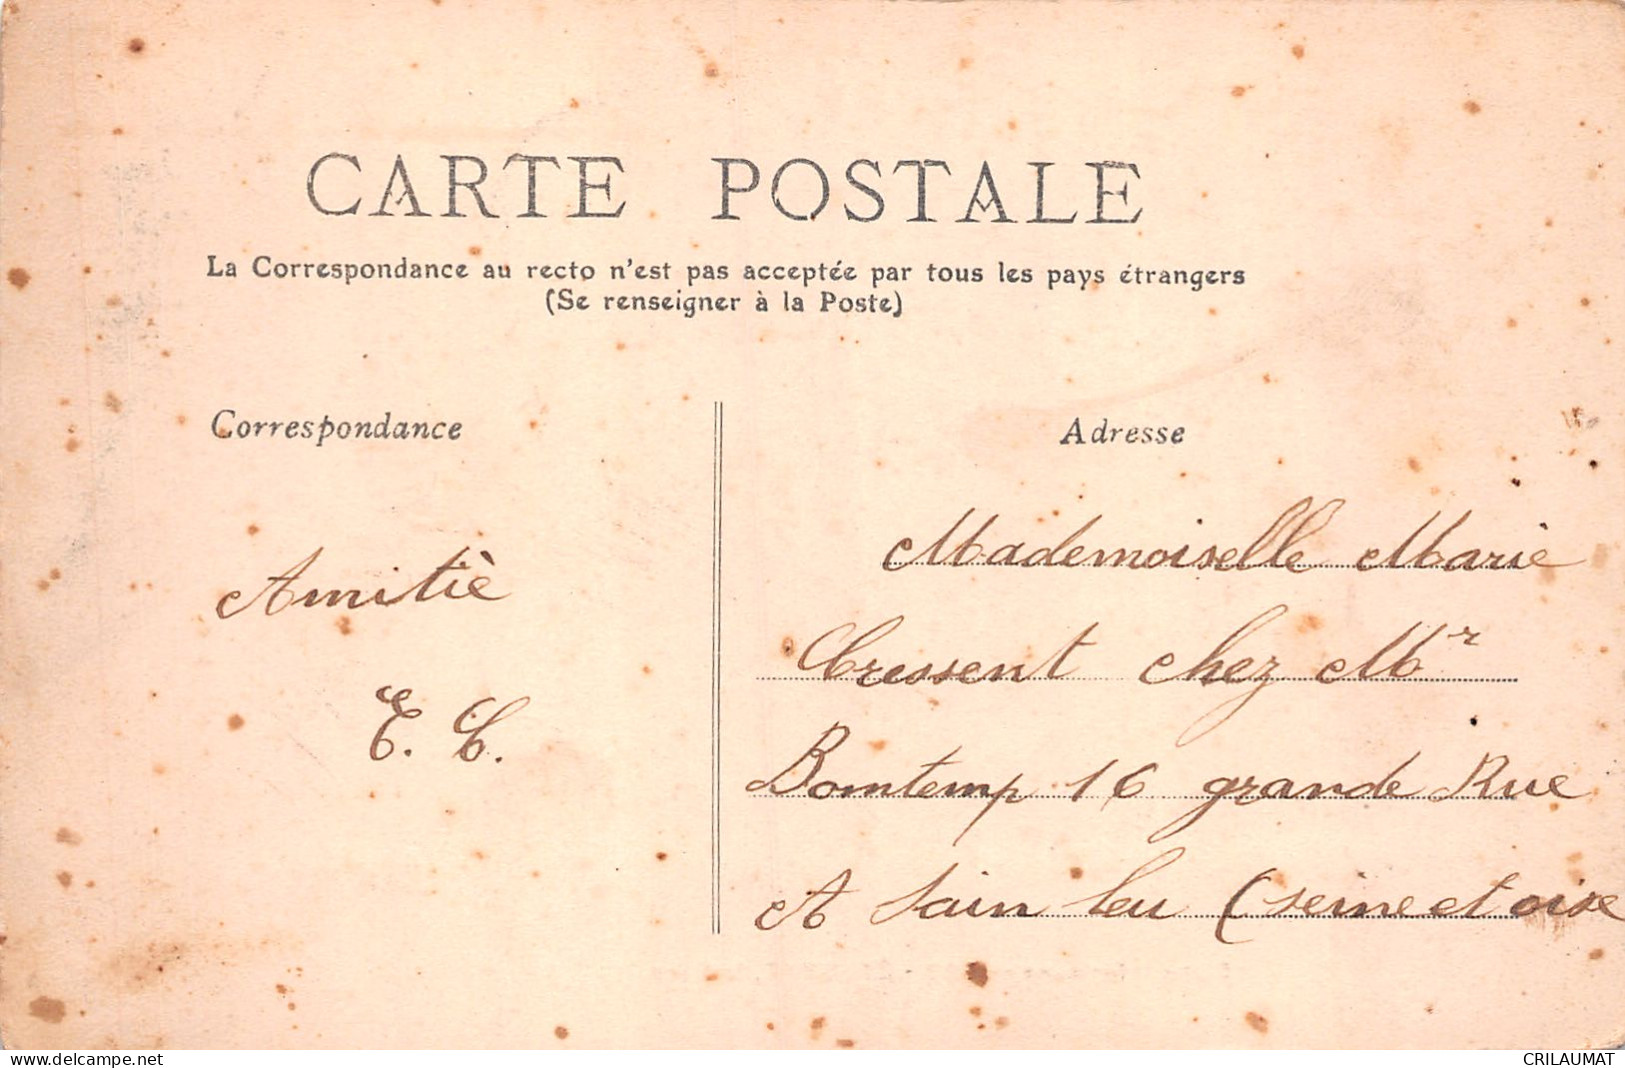 CARTE POSTALE
La Correspondance au recto n'est pas acceptée par tous les pays étrangers
(Se renseigner à la Poste)
Correspondance
Adresse
Amitiè
E. C.
Mademoiselle Marie
Cressent chez Mr
Bomtemp 16 grande Rue
A Sain Leu (seine et oise
www.delcampe.net
CRILAUMAT